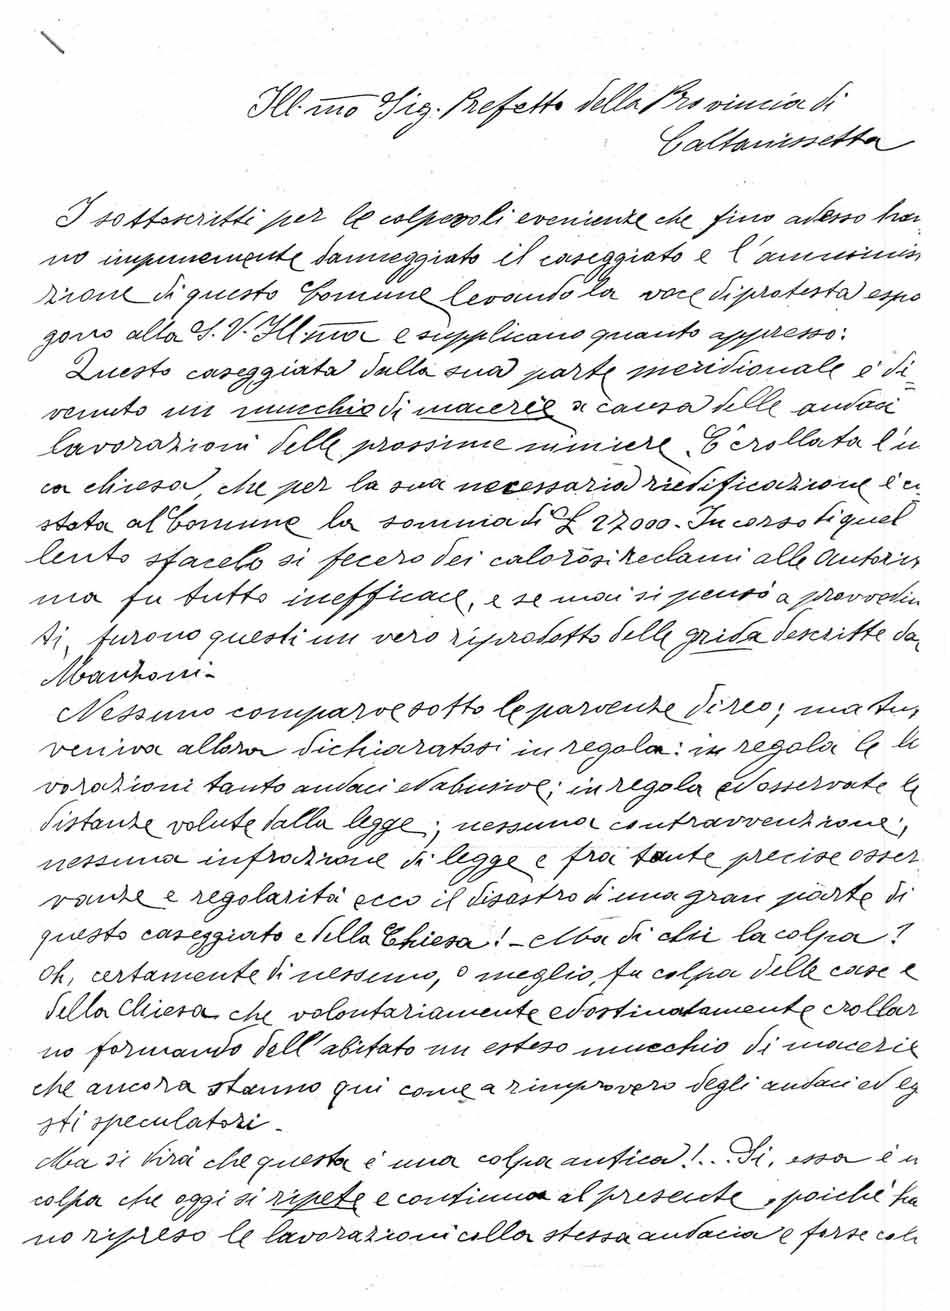 Ill.mo Sig. Prefetto della Provincia di
Caltanissetta
I sottoscritti per le colpevoli evenienze che fino adesso han
no impunemente danneggiato il caseggiato e l'amminis
zione di questo Comune levando la voce di protesta espo
gono alla S. V. Ill.ma e supplicano quanto appresso:
Questo caseggiato dalla sua parte meridionale è di=
venuto un mucchio di macerie a causa delle audaci
lavorazioni delle prossime miniere. È crollata l'u
ca chiesa, che per la sua necessaria riedificazione è co
stata al Comune la somma di £ 27000. In corso di quel
lento sfacelo si fecero dei calorosi reclami alle Autori
ma fu tutto inefficace, e se mai si pensò a provvedim
ti, furono questi un vero riprodotto delle grida descritte da
Manzoni-
Nessuno comparve sotto le parvenze di reo; ma tut
veniva allora dichiaratosi in regola: in regola le la
vorazioni tanto audaci ed abusive; in regola ed osservate le
distanze volute dalla legge; nessuna contravvenzione;
nessuna infrazione di legge e fra tante precise osser
vanze e regolarità ecco il disastro di una gran parte di
questo caseggiato e della Chiesa! - Ma di chi la colpa?
Oh, certamente di nessuno, o meglio, fu colpa delle case e
della Chiesa che volontariamente ed ostinatamente crollar
no formando dell'abitato un esteso mucchio di macerie
che ancora stanno qui come a rimprovero degli audaci ed eg
sti speculatori -
Ma si dirà che questa è una colpa antica!.. Sì, essa è u
colpa che oggi si ripete e continua al presente, poiché ha
no ripreso le lavorazioni colla stessa audacia e forse col